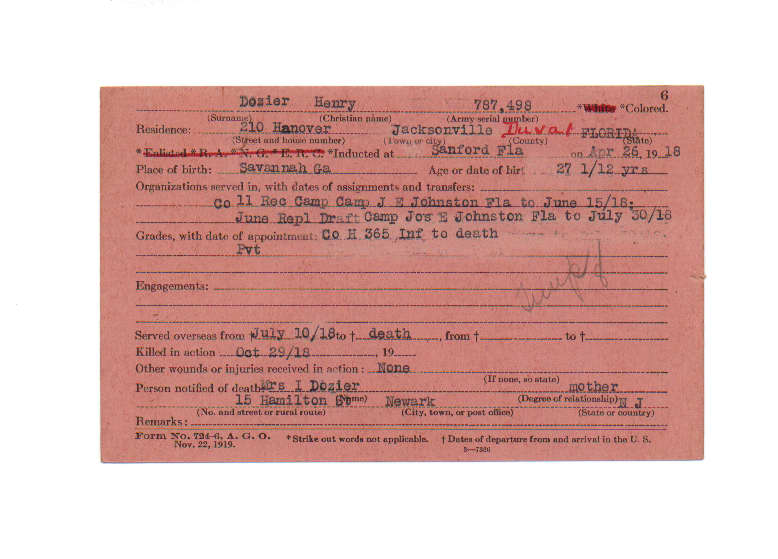 6
Dozier Henry 787,498 *White *Colored.
(Surname) (Christian name) (Army serial number)
Residence: 210 Hanover Jacksonville Duval FLORIDA
(Street and house number) (Town or city) (County) (State)
*Enlisted *R. A. *N. G. *E. R. C. *Inducted at Sanford Fla on Apr 26, 1918
Place of birth: Savannah Ga Age or date of birth 27 1/12 yrs
Organizations served in, with dates of assignments and transfers:
Co 11 Rec Camp Camp J E Johnston Fla to June 15/18;
June Repl Draft Camp Jos E Johnston Fla to July 30/18
Grades, with date of appointment: Co H 365 Inf to death
Pvt
Engagements:
Served overseas from † July 10/18 to † death, from † to †
Killed in action Oct 29/18, 19
Other wounds or injuries received in action: None
(If none, so state)
Person notified of death: Mrs I Dozier mother
(Name) (Degree of relationship)
15 Hamilton St Newark N J
(No. and street or rural route) (City, town, or post office) (State or country)
Remarks:
Form No. 724-6, A. G. O. *Strike out words not applicable. † Dates of departure from and arrival in the U. S.
Nov. 22, 1919. 3—7326